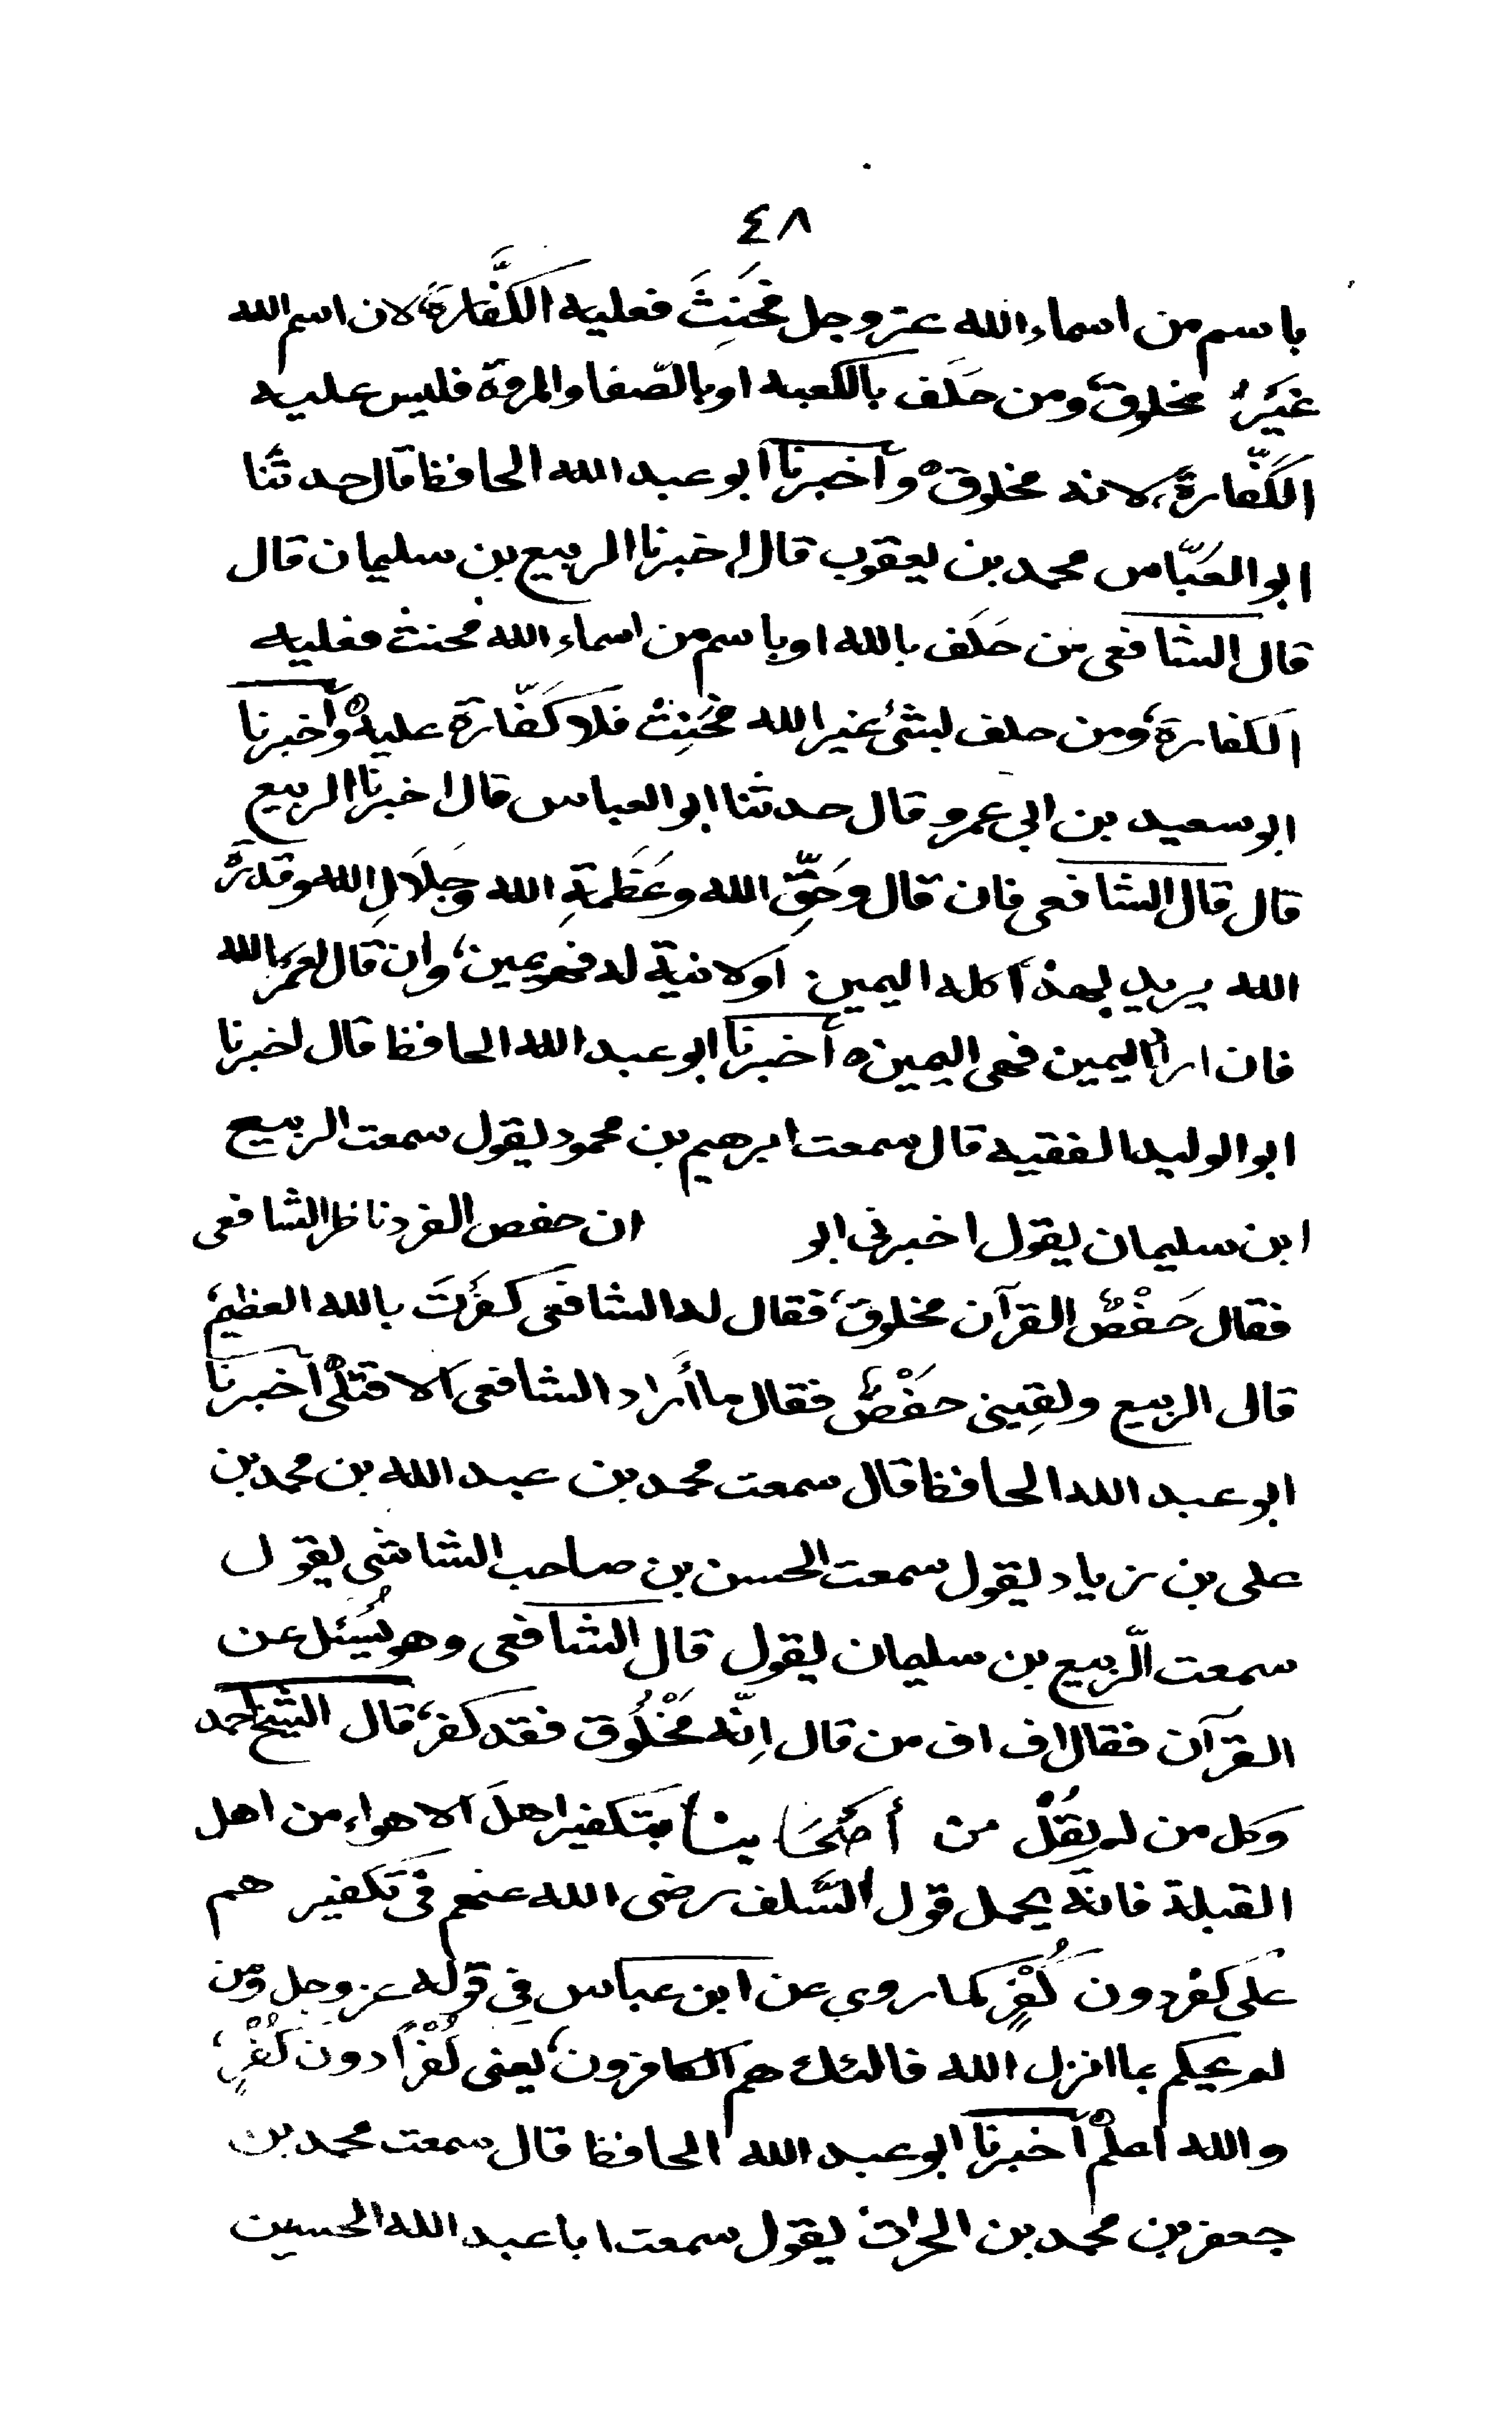 ٤٨
باسم من اسماء الله عز وجل فحَنِثَ فعليه الكَفَّارة، لان اسم الله
غَيْرُ مخلوق، ومن حَلَف بالكعبه او بالصّفا والمروة فليس عليه
الكَفّارةُ، لانه مخلوق ه وأخبرنا ابو عبد الله الحافظ قال حدثنا
ابو العَبّاس محمد بن يعقوب قال اخبرنا الربيع بن سليمان قال
قال الشافعى من حَلَف بالله او باسم من اسماء الله فحنث فعليه
الكفارة، ومن حلف بشئ غير الله فحَنِث فلا كَفّارة عليه ه وأخبرنا
ابو سعيد بن ابى عمرو قال حدثنا ابو العباس قال اخبرنا الربيع
قال قال الشافعى فان قال وحَقِّ الله وعَظَمةِ الله وجَلَالِ الله وقدرة
الله يريد بهذا كله اليمين او لا نية له فهو يمين، وان قال لعَمرُ الله
فان اراد اليمين فهى اليمين ه أخبرنا ابو عبد الله الحافظ قال اخبرنا
ابو الوليد الفقيه قال سمعت ابرهيم بن محمود يقول سمعت الربيع
ابن سليمان يقول اخبرنى ابو ان حفص الفرد ناظر الشافعى
فقال حَفْصٌ القرآن مخلوق، فقال له الشافعى كفَرْتَ بالله العظيم،
قال الربيع ولقِينى حفْصٌ فقال ما أراد الشافعى الا قتلى ه أخبرنا
ابو عبد الله الحافظ قال سمعت محمد بن عبد الله بن محمد بن
على بن زياد يقول سمعت الحسن بن صاحب الشاشى يقول
سمعت الرّبيع بن سليمان يقول قال الشافعى وهو يُسئل عن
القرآن فقال اف اف من قال اِنّه مَخْلُوق فقد كفر، قال الشيخ احمد
وكل من لم يقُلْ من أصْحَابنا بتكفير اهل الاهواء من اهل
القبلة فانه يحمل قول السَّلف رضى الله عنهم فى تكفير هم
على كفر دون كُفْرٍ كما روى عن ابن عباس فى قوله عز وجل ومن
لم يحكم بما انزل الله فالئك هم الكافرون، يعنى كُفْراً دون كُفْرٍ،
والله اعلم ه أخبرنا ابو عبد الله الحافظ قال سمعت محمد بن
جعفر بن محمد بن الحراث يقول سمعت ابا عبد الله الحسين